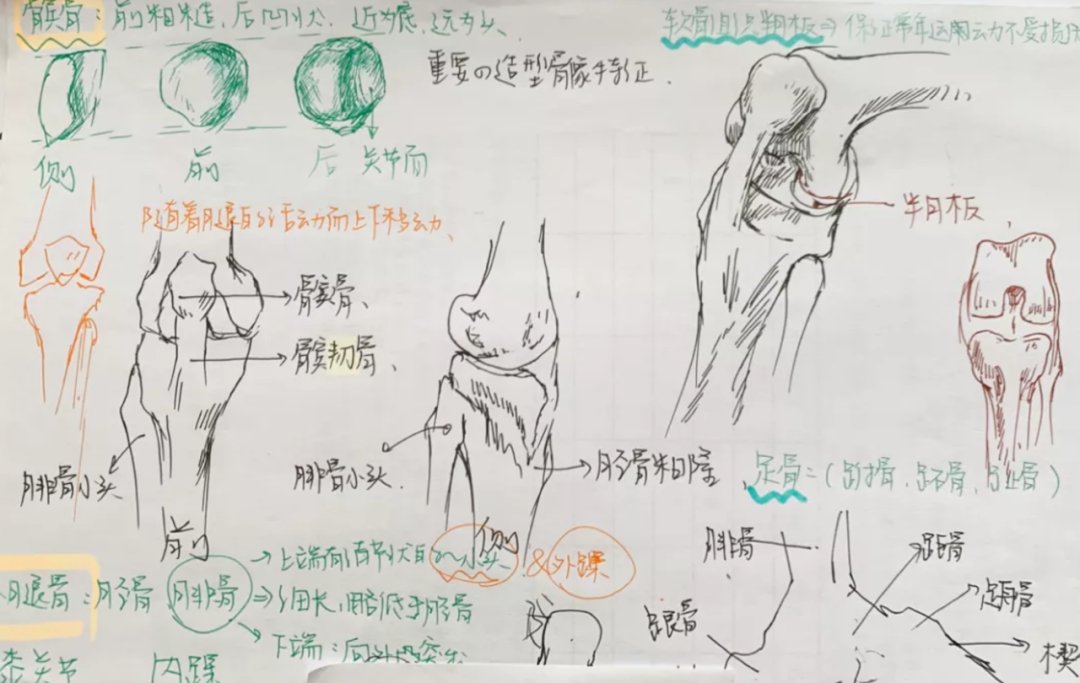 髌骨：前粗糙，后凹状，近为底，远为尖、
软骨组织半月板⇒保证常年运动不受损伤
重要の造型骨像特征.
侧
前
后
关节面
随着腿的活动而上下移动、
半月板
髌骨、
髌韧骨、
腓骨小头
前
腓骨小头.
侧
胫骨粗隆
足骨：(跗骨、跖骨、趾骨)
腿骨：胫骨 腓骨
上端有
小头 & 外踝
细长，略低于胫骨
下端：向外
腓骨
跟骨
距骨
楔
膝关节 内踝